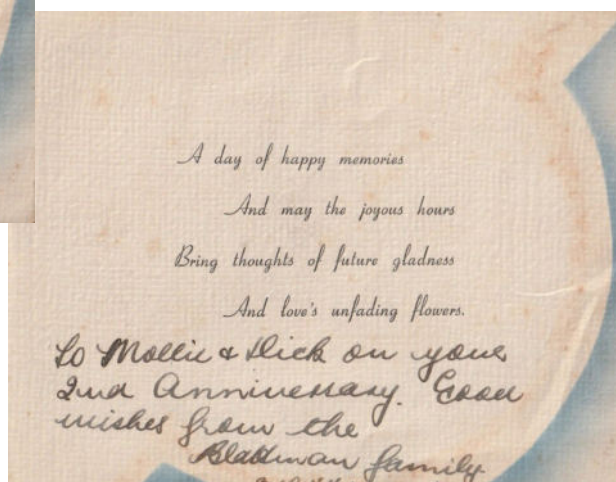 A day of happy memories
And may the joyous hours
Bring thoughts of future gladness
And love's unfading flowers.
To Mollie & Dick on your
2nd Anniversary. Good
wishes from the
family